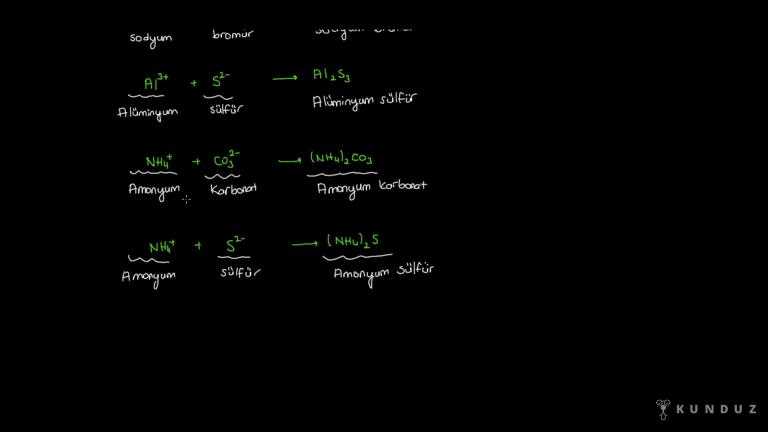 sodyum bromür
Al³⁺ + S²⁻ → Al₂S₃
Alüminyum sülfür Alüminyum sülfür
NH₄⁺ + CO₃²⁻ → (NH₄)₂CO₃
Amonyum Karbonat Amonyum karbonat
NH₄⁺ + S²⁻ → (NH₄)₂S
Amonyum sülfür Amonyum sülfür
KUNDUZ